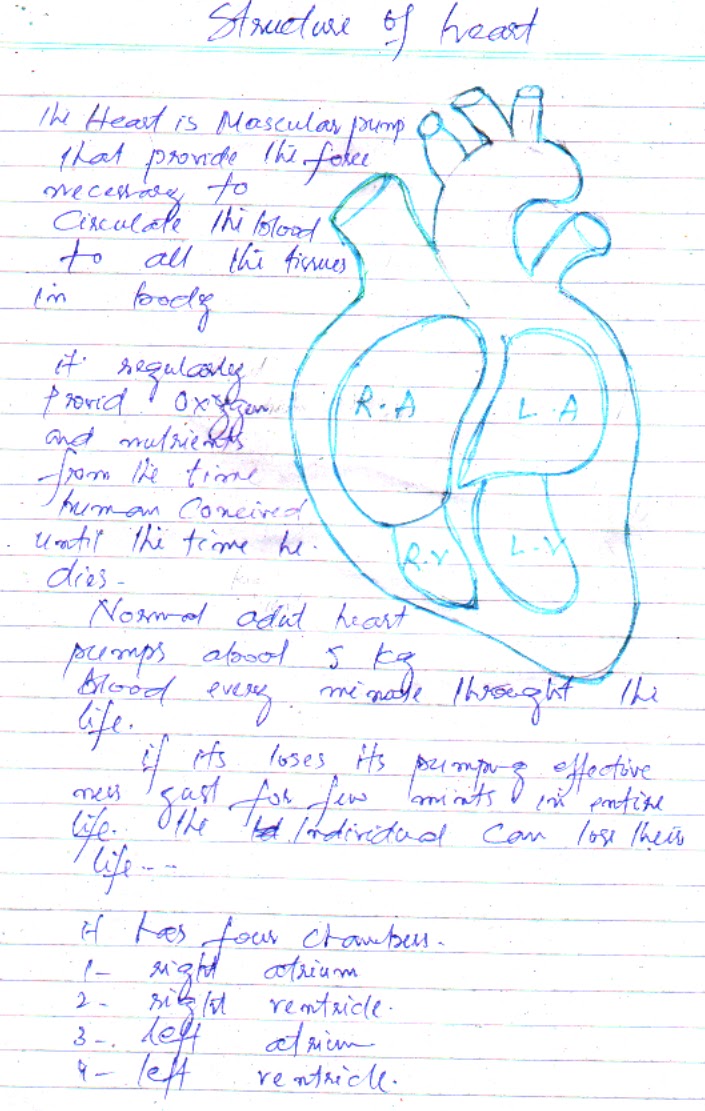 Structure of heart
The Heart is Mascular pump
that provide the force
necessary to
Circulate the blood
to all the tissues
in body
it regularly
Provid Oxyggen
and nutrients
from the time
human Conceived
until the time he
dies-
Normal adut heart
pumps abool 5 kg
blood every minate throught the
life.
if its loses its pumpng effective
ness gust for few mints in entire
life. the Individual can lose their
life---
R.A
L.A
R.V
L.V
it has four chambers.
1- right atrium
2- right ventricle.
3-. left atrium
4- left ventricle.